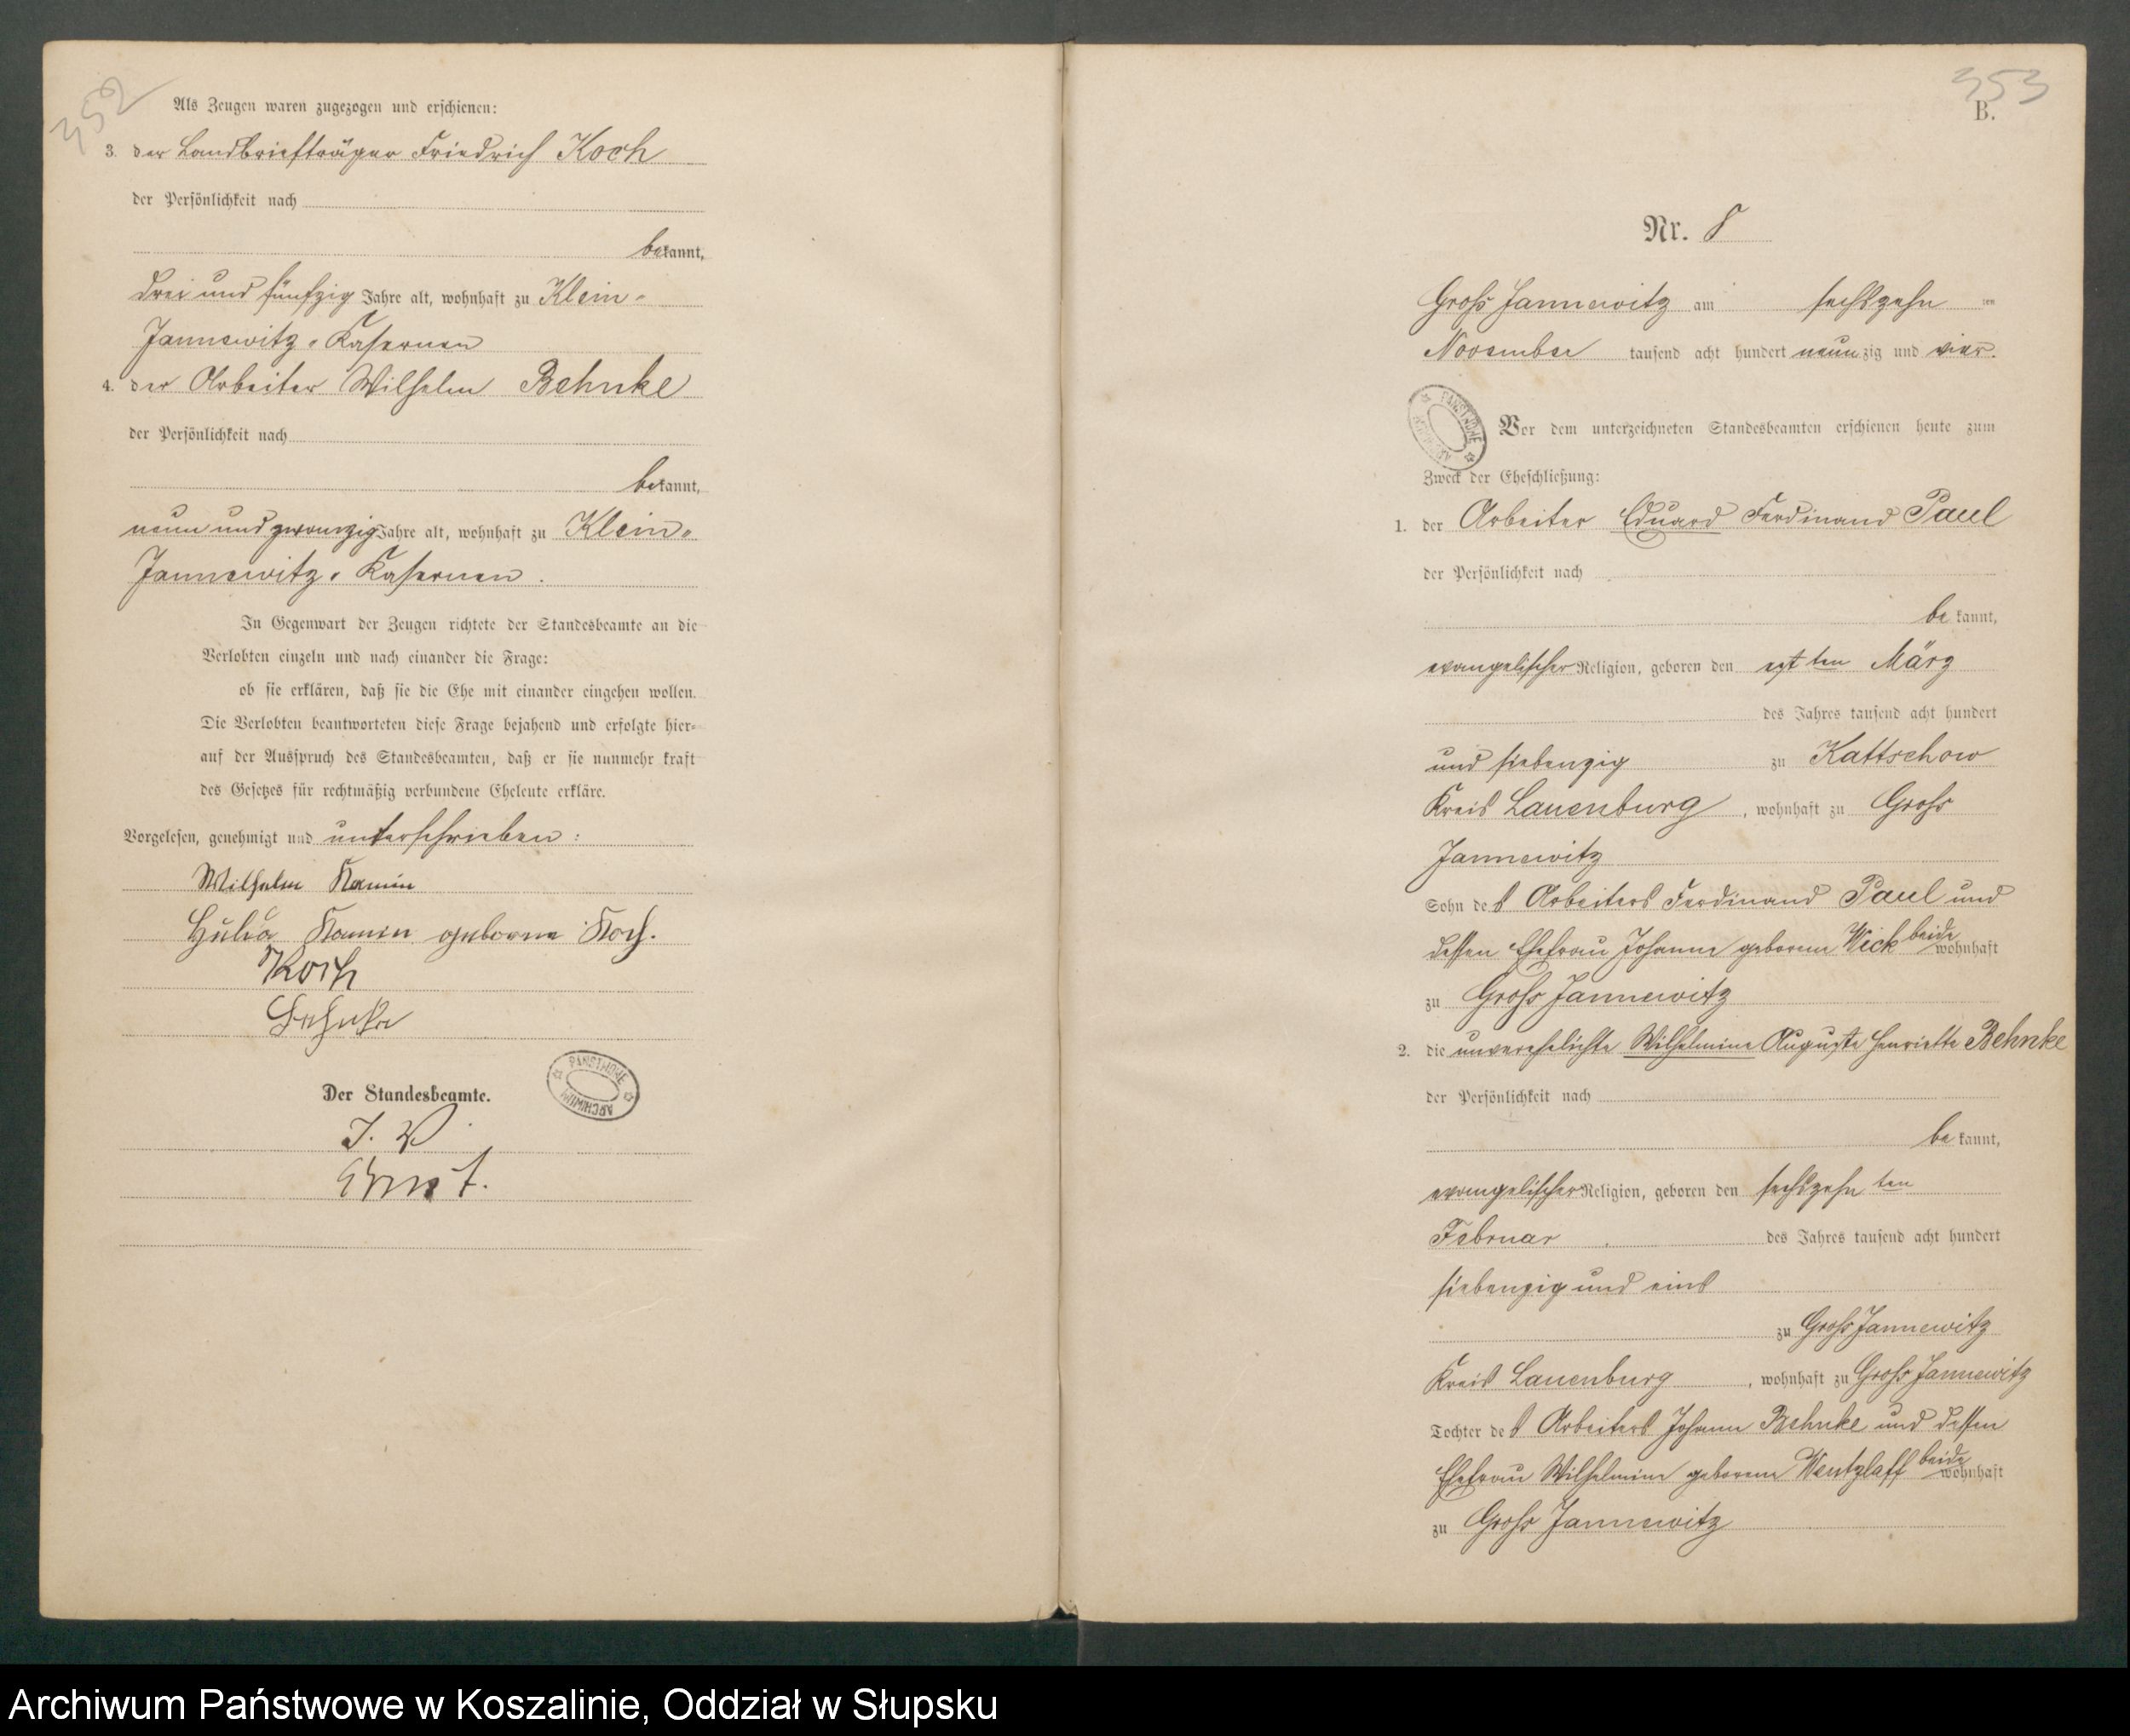 352
Als Zeugen waren zugezogen und erschienen:
3. der Landbriefträger Friedrich Koch
der Persönlichkeit nach
bekannt,
drei und fünfzig Jahre alt, wohnhaft zu Klein-
Jannewitz-Kasernen
4. der Arbeiter Wilhelm Behnke
der Persönlichkeit nach
bekannt,
neun und zwanzig Jahre alt, wohnhaft zu Klein-
Jannewitz-Kasernen.
In Gegenwart der Zeugen richtete der Standesbeamte an die
Verlobten einzeln und nach einander die Frage:
ob sie erklären, daß sie die Ehe mit einander eingehen wollen.
Die Verlobten beantworteten diese Frage bejahend und erfolgte hier-
auf der Ausspruch des Standesbeamten, daß er sie nunmehr kraft
des Gesetzes für rechtmäßig verbundene Eheleute erkläre.
Vorgelesen, genehmigt und unterschrieben:
Wilhelm Kamin
Kamin geborne Koch.
Koch
Behnke
Der Standesbeamte.
I. V.
Ernst.
PAŃSTWOWE ARCHIWUM
353
B.
Nr. 8
Groß Jannewitz am sechszehn ten
November tausend acht hundert neunzig und vier.
PAŃSTWOWE ARCHIWUM
Vor dem unterzeichneten Standesbeamten erschienen heute zum
Zweck der Eheschließung:
1. der Arbeiter Eduard Ferdinand Paul
der Persönlichkeit nach
bekannt,
evangelischer Religion, geboren den acht ten März
des Jahres tausend acht hundert
und siebenzig zu Kattschow
Kreis Lauenburg, wohnhaft zu Groß
Jannewitz
Sohn des Arbeiters Ferdinand Paul und
dessen Ehefrau Johanne geborene Wick beide wohnhaft
zu Groß Jannewitz
2. die unverehelichte Wilhelmine Auguste Henriette Behnke
der Persönlichkeit nach
bekannt,
evangelischer Religion, geboren den sechszehn ten
Februar des Jahres tausend acht hundert
siebenzig und eins
zu Groß Jannewitz
Kreis Lauenburg, wohnhaft zu Groß Jannewitz
Tochter des Arbeiters Johann Behnke und dessen
Ehefrau Wilhelmine geborene Wentzlaff beide wohnhaft
zu Groß Jannewitz
Archiwum Państwowe w Koszalinie, Oddział w Słupsku